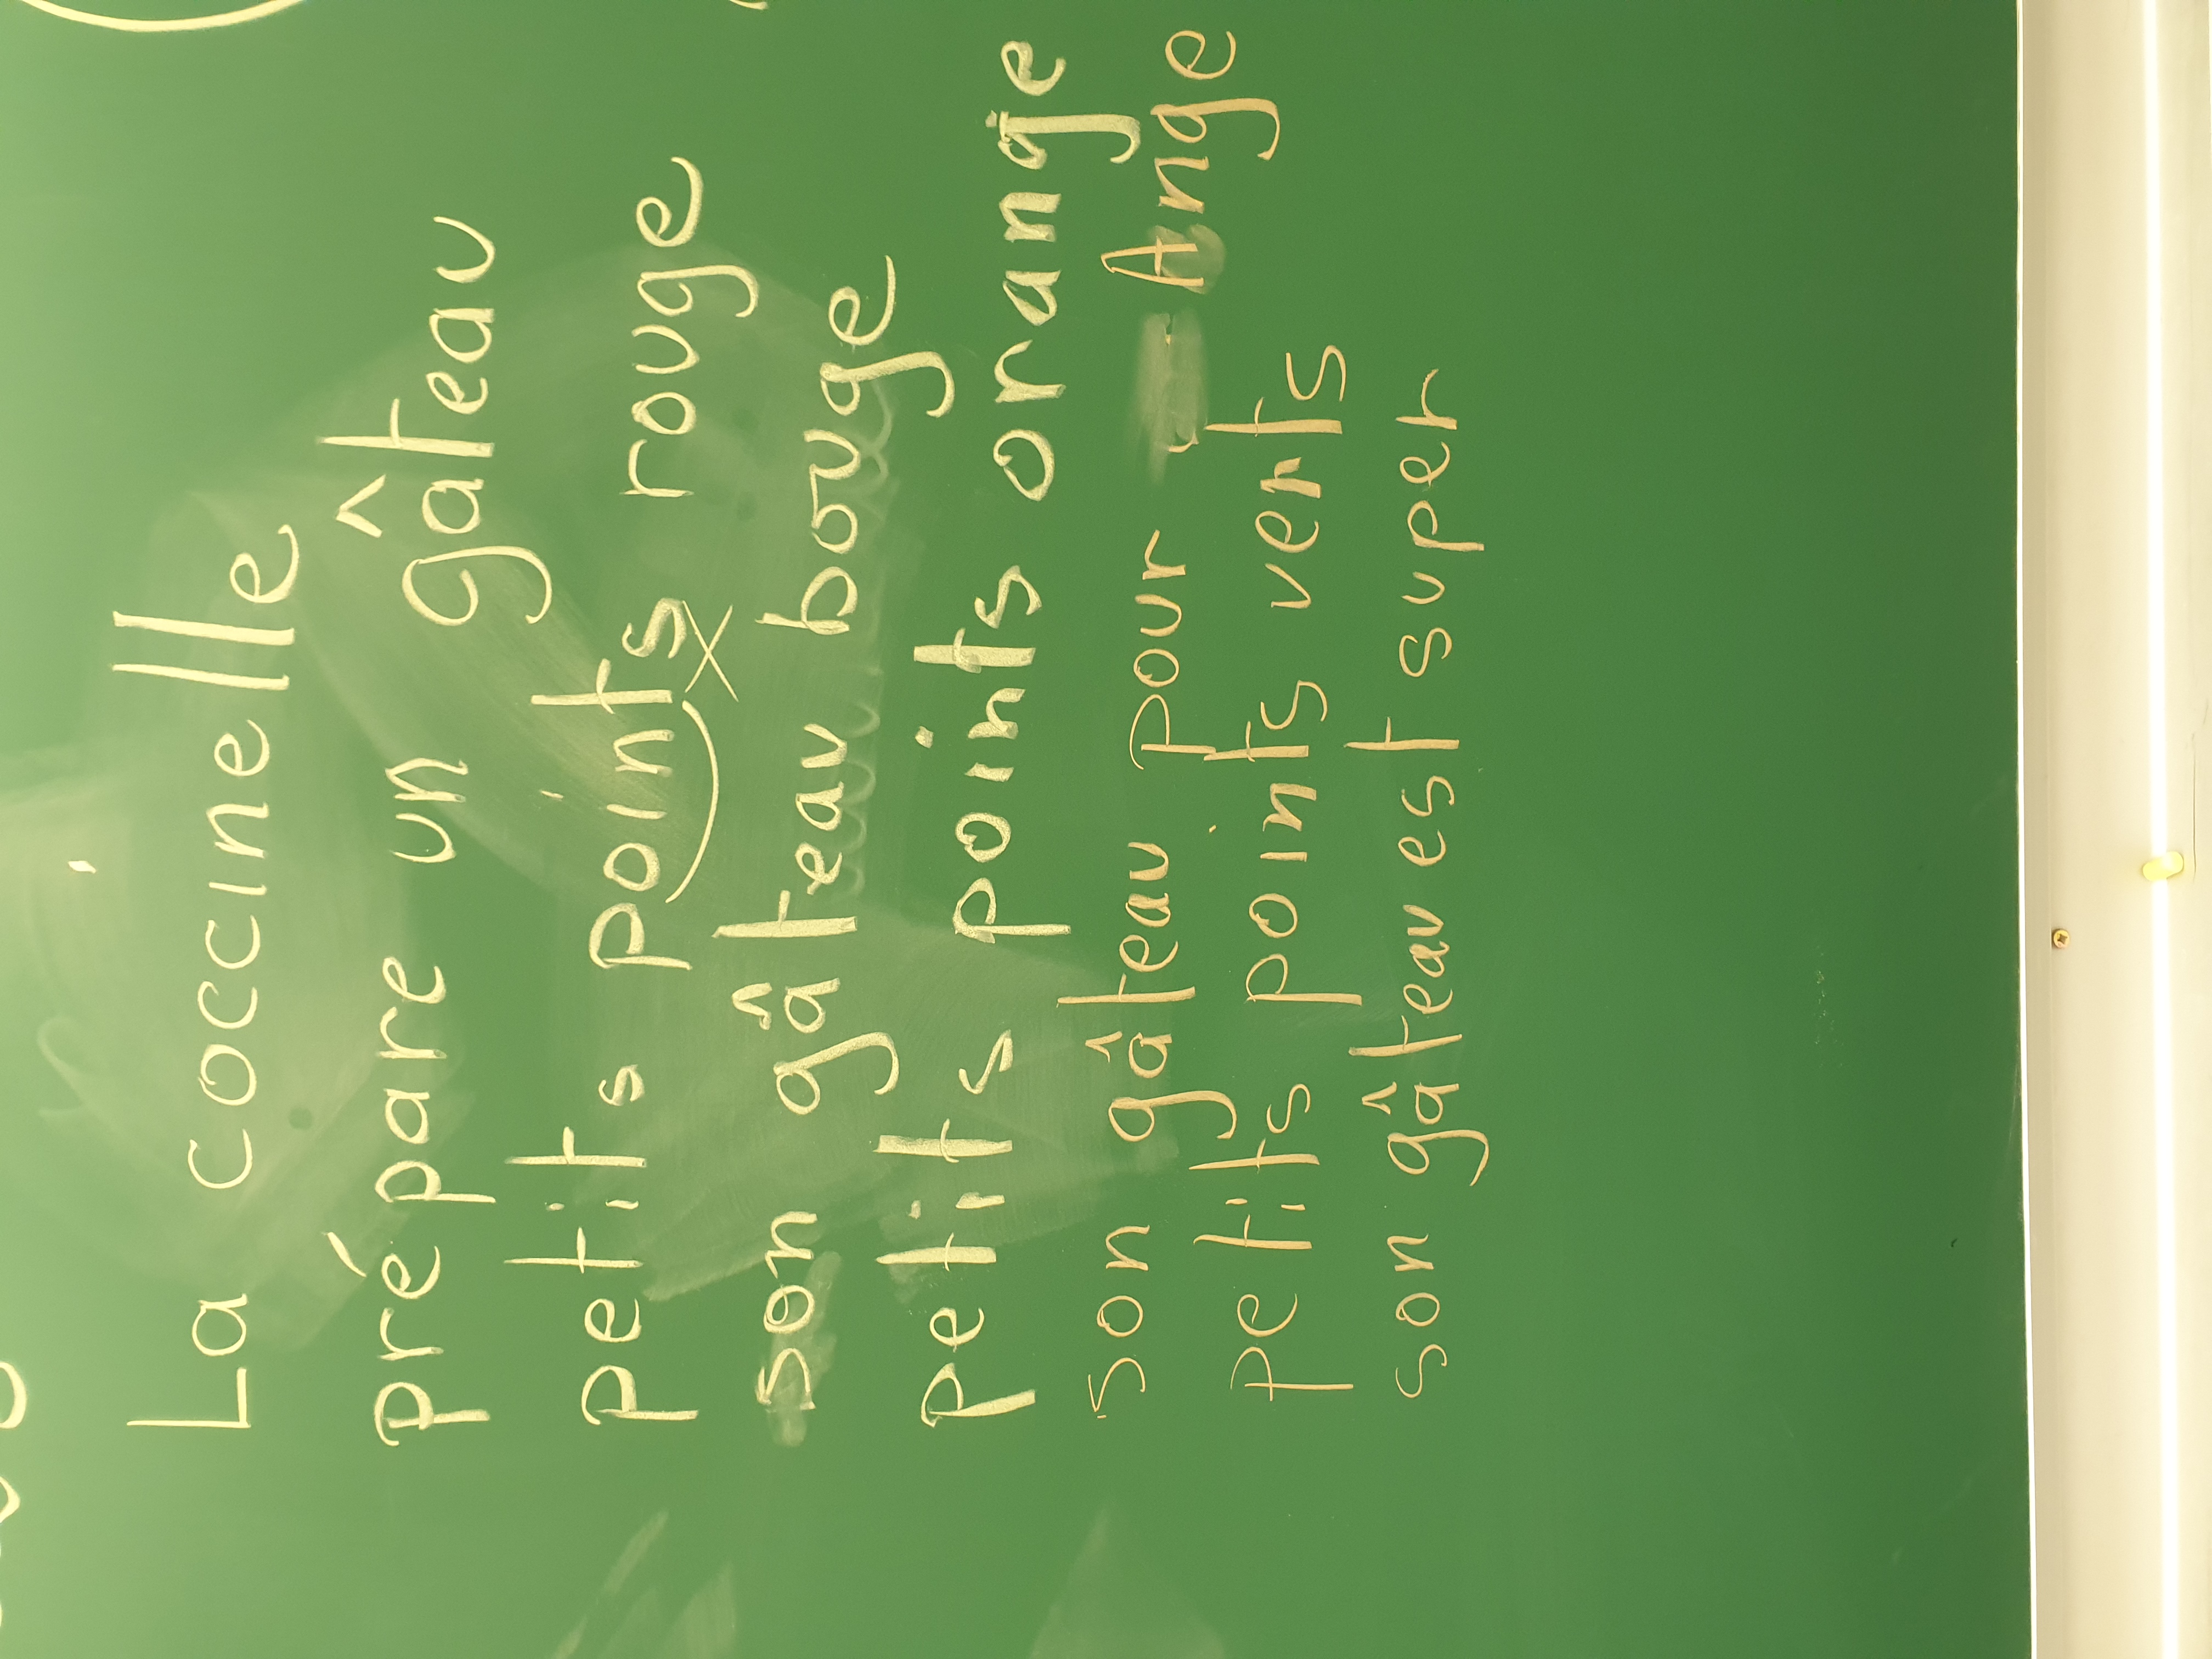 La coccinelle
prépare un gâteau
petits points rouge
son gâteau bouge
petits points orange
son gâteau pour Ange
petits points verts
son gâteau est super